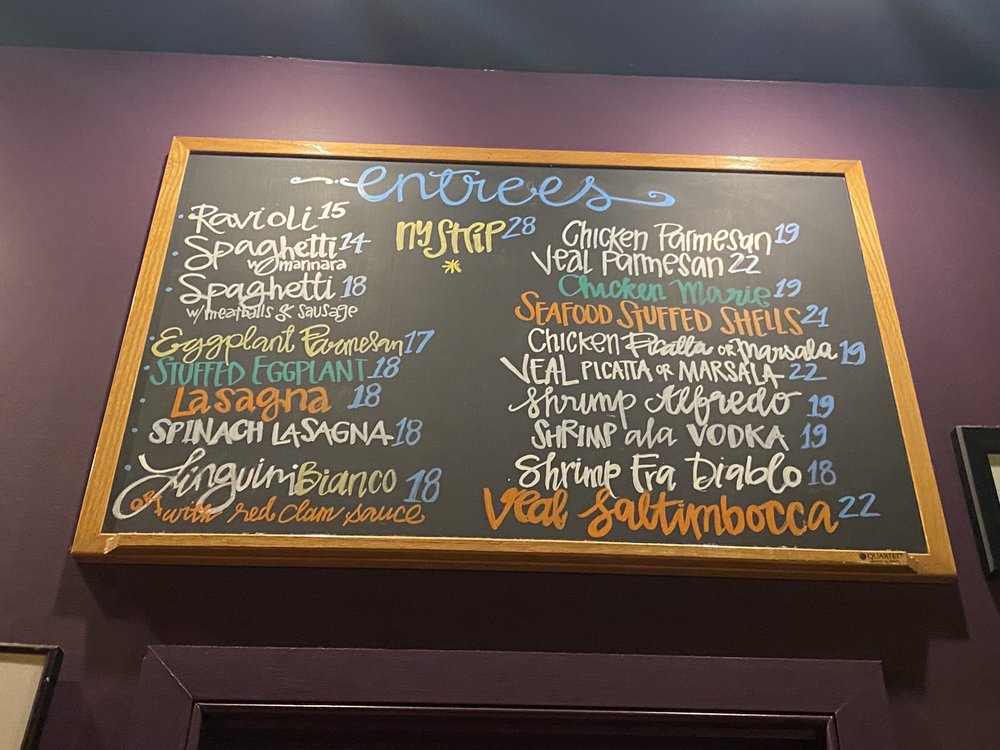 entrees
Ravioli 15
Spaghetti 14
w/ mannara
Spaghetti 18
w/ meatballs & sausage
Eggplant Parmesan 17
STUFFED EGGPLANT 18
Lasagna 18
SPINACH LASAGNA 18
Linguini Bianco 18
or with red clam sauce
NY Strip 28
Chicken Parmesan 19
Veal Parmesan 22
Chicken Marie 19
SEAFOOD STUFFED SHELLS 21
Chicken Picatta or Marsala 19
VEAL PICATTA OR MARSALA 22
Shrimp Alfredo 19
SHRIMP ala VODKA 19
Shrimp Fra Diablo 18
Veal Saltimbocca 22
QUARTET